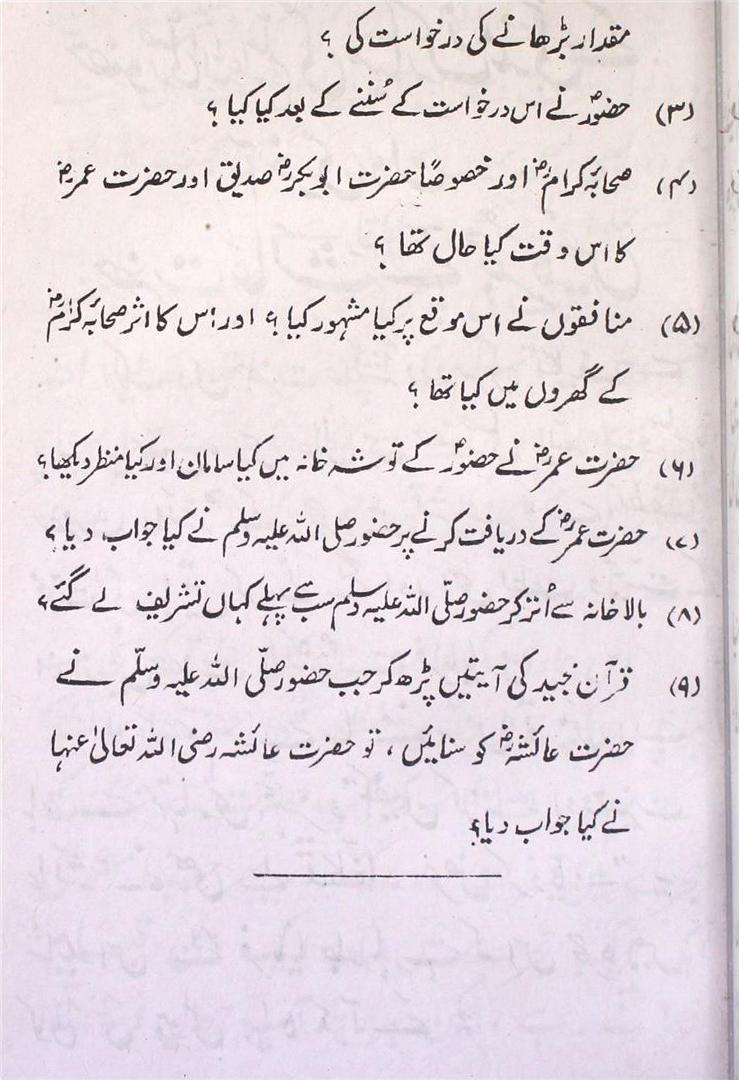 مقدار بڑھانے کی درخواست کی ؟
(۳) حضورؐ نے اس درخواست کے سُننے کے بعد کیا کیا ؟
(۴) صحابہ کرامؓ اور خصوصًا حضرت ابوبکرؓ صدیق اور حضرت عمرؓ
کا اس وقت کیا حال تھا ؟
(۵) منافقوں نے اس موقع پر کیا مشہور کیا ؟ اور اس کا اثر صحابہ کرامؓ
کے گھروں میں کیا تھا ؟
(۶) حضرت عمرؓ نے حضورؐ کے توشہ خانہ میں کیا سامان اور کیا منظر دیکھا ؟
(۷) حضرت عمرؓ کے دریافت کرنے پر حضور صلی اللہ علیہ وسلم نے کیا جواب دیا ؟
(۸) بالا خانہ سے اُتر کر حضور صلّی اللہ علیہ وسلم سب سے پہلے کہاں تشریف لے گئے ؟
(۹) قرآن مجید کی آیتیں پڑھ کر جب حضور صلّی اللہ علیہ وسلّم نے
حضرت عائشہؓ کو سنائیں ، تو حضرت عائشہ رضی اللہ تعالیٰ عنہا
نے کیا جواب دیا ؟